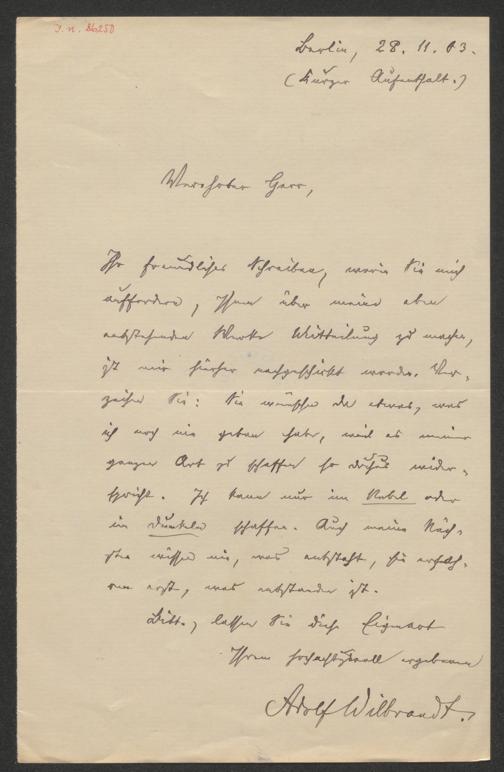 J. N. 86250
Berlin, 28. 11. 03.
(Kurzer Aufenthalt.)
Verehrter Herr,
Ihr freundliches Schreiben, worin Sie mich
auffordern, Ihnen über meine eben
entstehenden Werke Mitteilung zu machen,
ist mir hierher nachgeschickt worden. Ver-
zeihen Sie: Sie wünschen da etwas, was
ich noch nie gethan habe, weil es meiner
ganzen Art zu schaffen so durchaus wider-
spricht. Ich kann nur im Nebel oder
im Dunkeln schaffen. Auch meine Näch-
sten wissen nie, was entsteht, sie erfah-
ren erst, was entstanden ist.
Bitte, lassen Sie diese Eigenart
Ihrem hochachtungsvoll ergebenen
Adolf Wilbrandt.